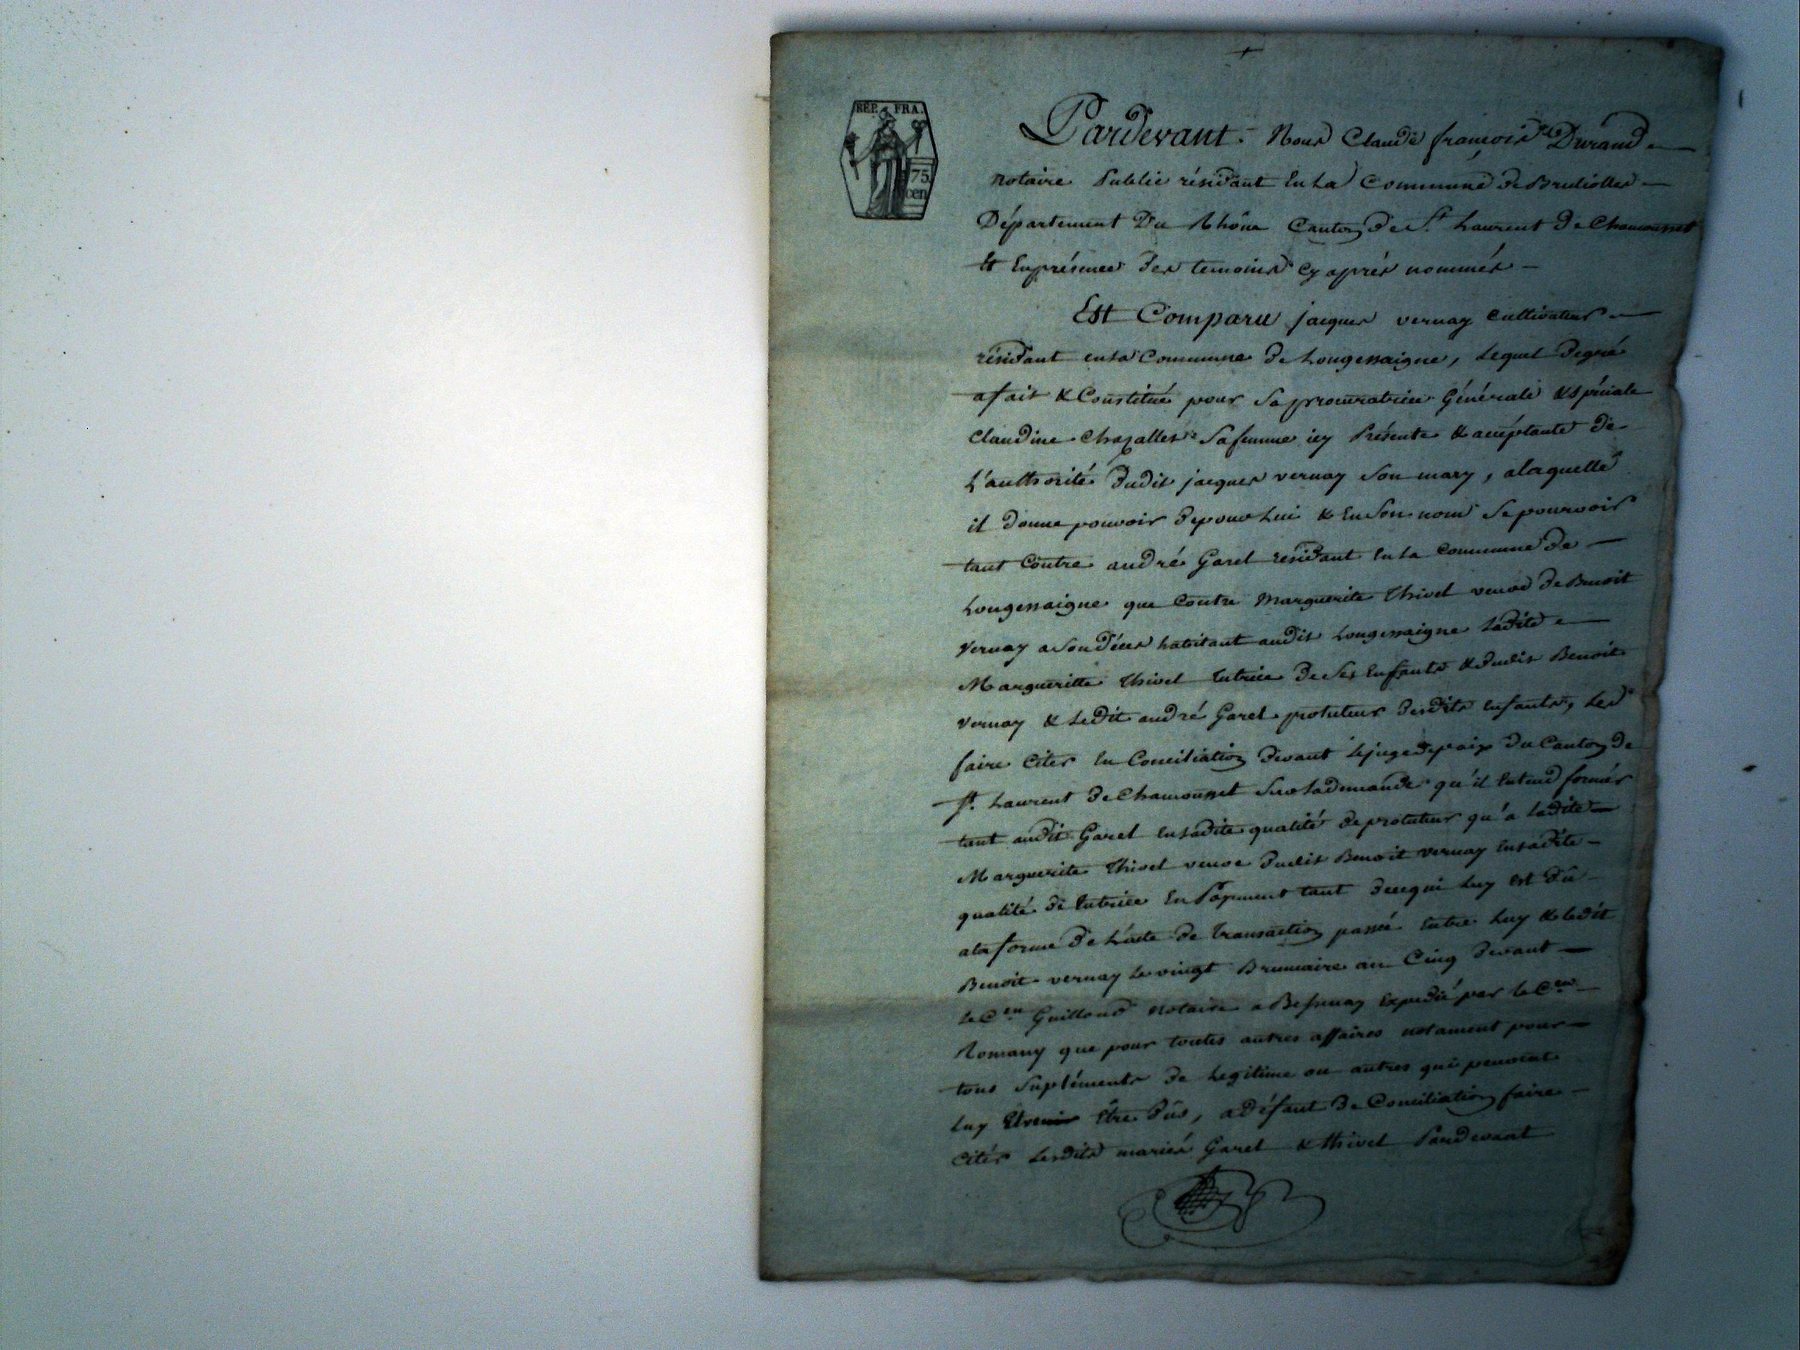 REP. FRA.
75
cen
Pardevant. Nous Claude françois Durand
notaire Public résidant En La Commune de Bruliolles
Département Du Rhône Canton De St. Laurent De Chamousset
Et En présence des temoins Cy après nommés
Est Comparu jacques vernay cultivateur
résidant en la Commune de Longessaigne, Lequel de gré
a fait & Constitué pour Sa procuratrice Générale & Spéciale
Claudine Chazalles Sa femme icy Présente & acceptante de
L'authorité dudit jacques vernay Son mary, a laquelle
il donne pouvoir de pour Lui & En Son nom Se pourvoir
tant Contre andré Garel residant En La Commune de
Longessaigne que Contre Marguerite Thivel veuve de Benoit
Vernay a Son décès habitant audit Longessaigne Ladite
Margueritte Thivel tutrice de Ses Enfants & dudit Benoit
Vernay & Ledit andré Garel protuteur desdits enfants, Les
faire Citer En Conciliation devant Le juge de paix du Canton de
St. Laurent de Chamousset Sur La demande qu'il Entend former
tant audit Garel En sadite qualité de protuteur qu'a Ladite
Marguerite Thivel veuve dudit Benoit vernay En sadite
qualité de tutrice En Payement tant de ce qui Luy est dû
a la forme de L'acte de transaction passée Entre Luy & Ledit
Benoit vernay Le vingt Brumaire an Cinq devant
Le Cen Guilloud Notaire a Bessenay Expedié par Le Cen
Romany que pour toutes autres affaires notament pour
tous Supléments de Legitime ou autres qui peuvent
Luy Etre dûs, a défaut de Conciliation faire
Citer Lesdits mariés Garel & thivel Pardevant